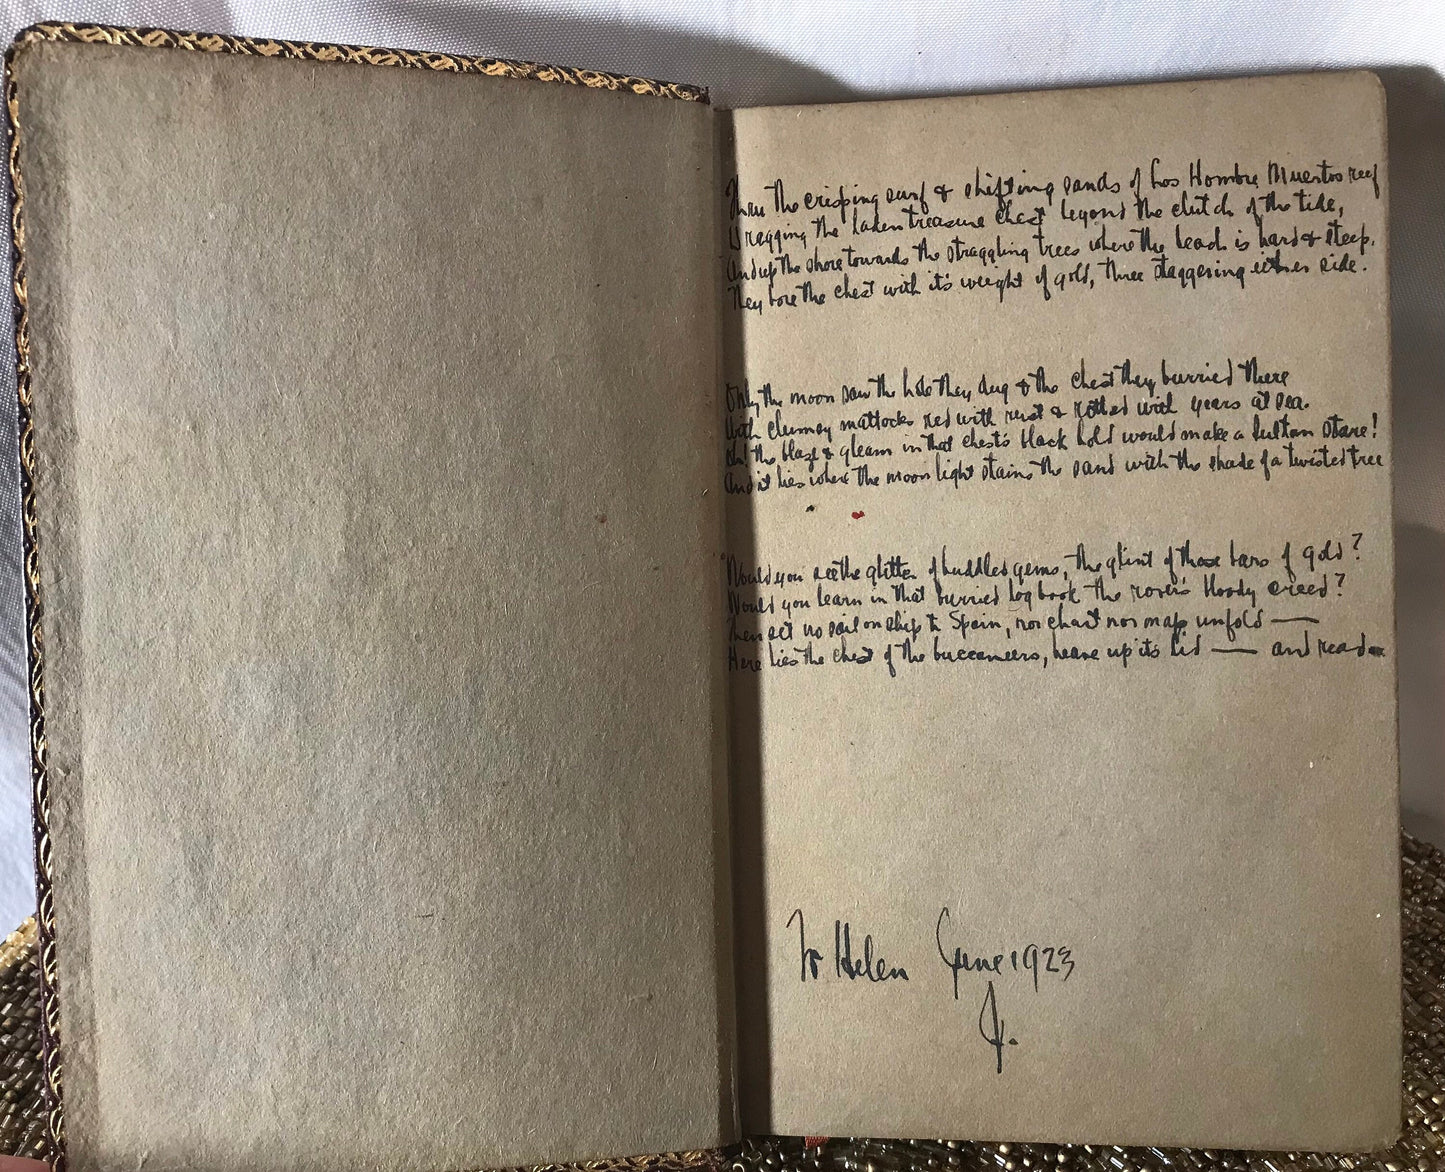 Thru the crisping surf & shifting sands of Los Hombre Muertos reef
Dragging the laden treasure chest beyond the clutch of the tide,
And up the shore towards the straggling trees where the beach is hard & steep.
They bore the chest with it's weight of gold, three staggering either side.
Only the moon saw the hole they dug & the chest they burried there
With clumsy mattocks red with rust & rotted with years at sea.
Oh! the blaze & gleam in that chest's black hold would make a Sultan stare!
And it lies where the moon light stains the sand with the shade of a twisted tree
Would you see the glitter of huddled gems, the glint of those bars of gold?
Would you learn in that burried log book the rover's bloody creed?
Then set no sail on ship to Spain, nor chart nor map unfold —
Here lies the chest of the buccaneers, heave up its lid — and read—
To Helen June 1923